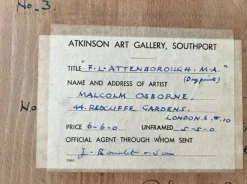 No. 3.
ATKINSON ART GALLERY, SOUTHPORT
TITLE "F. L. ATTENBOROUGH. M.A."
(Drypoint)
NAME AND ADDRESS OF ARTIST
MALCOLM OSBORNE,
44. REDCLIFFE GARDENS.
LONDON. S.W.10
PRICE 6-6-0 UNFRAMED 5-5-0
OFFICIAL AGENT THROUGH WHOM SENT
J. & Son
No